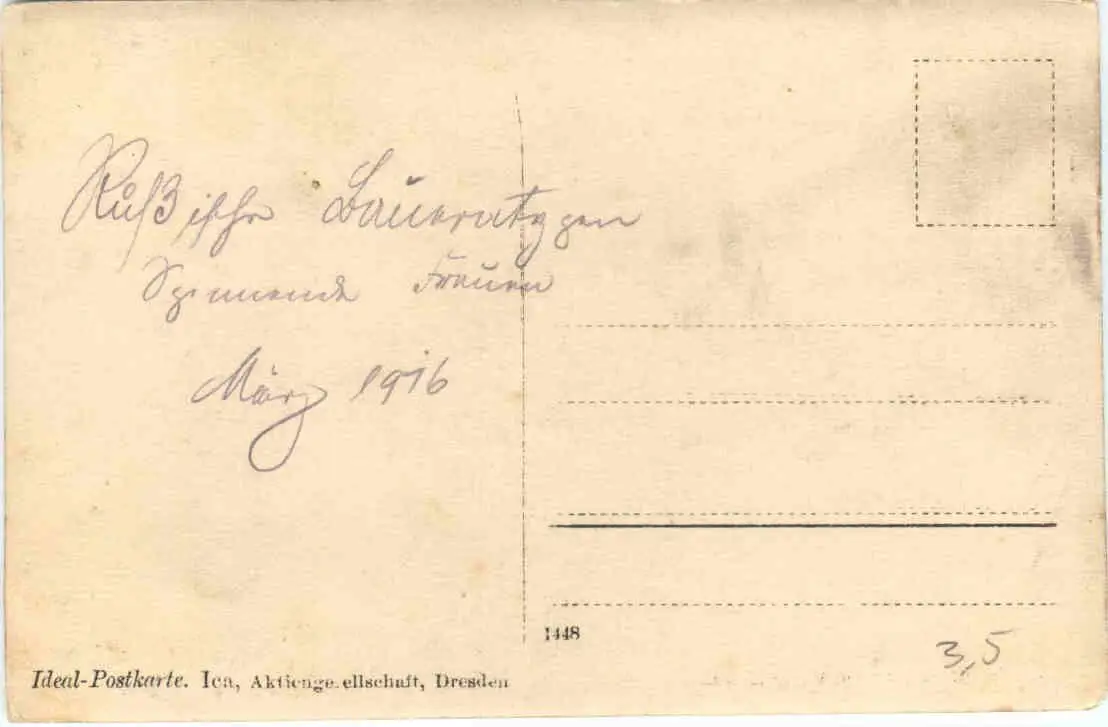 Rußische Bauerntypen
Spinnende Frauen
März 1916
1448
3,5
Ideal-Postkarte. Ica, Aktiengesellschaft, Dresden